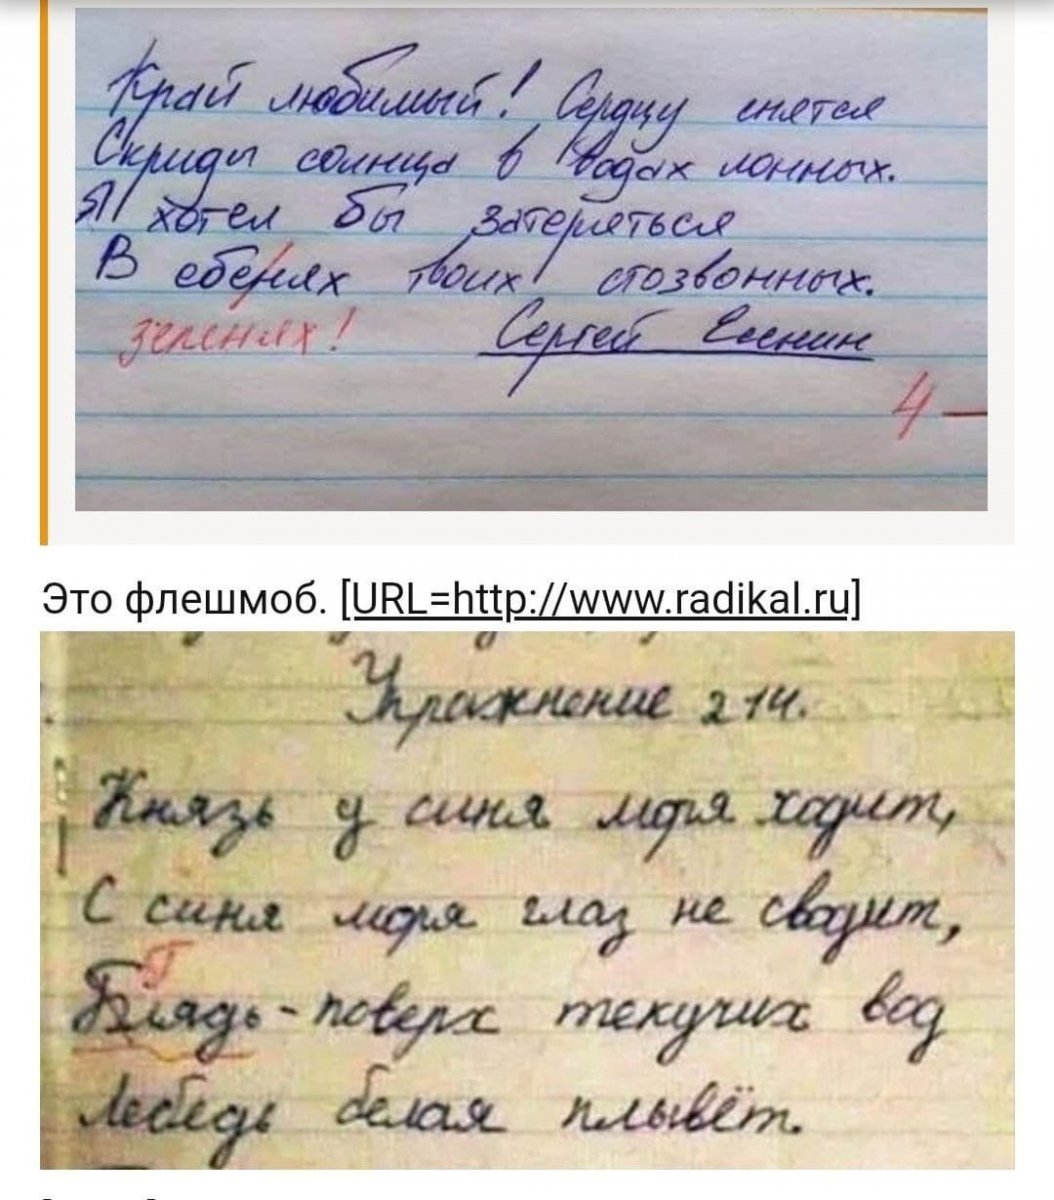 Край любимый! Сердцу снятся
Скриды солнца в водах лонных.
Я хотел бы затеряться
В ебенях твоих стозвонных.
зеленях!
Сергей Есенин
4 —
Это флешмоб. [URL=http://www.radikal.ru]
Упражнение 214.
Князь у синя моря ходит,
С синя моря глаз не сводит,
Г
Блядь - поверх текучих вод
Лебедь белая плывёт.